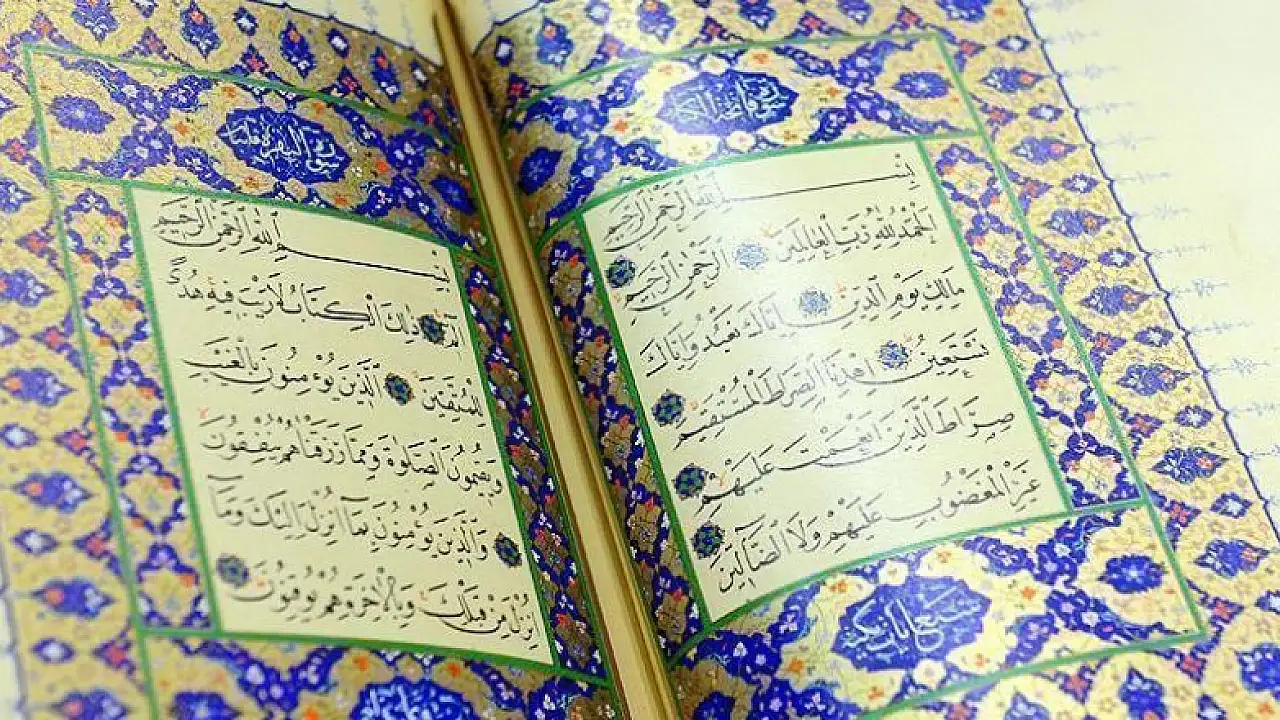 سورة فاتحة الكتاب
بِسْمِ اللهِ الرَّحْمٰنِ الرَّحِيمِ
اَلْحَمْدُ لِلّٰهِ رَبِّ الْعَالَمِينَ الرَّحْمٰنِ الرَّحِيمِ
مَالِكِ يَوْمِ الدِّينِ اِيَّاكَ نَعْبُدُ وَاِيَّاكَ
نَسْتَعِينُ اِهْدِنَا الصِّرَاطَ الْمُسْتَقِيمَ
صِرَاطَ الَّذِينَ اَنْعَمْتَ عَلَيْهِمْ
غَيْرِ الْمَغْضُوبِ عَلَيْهِمْ وَلَا الضَّالِّينَ
سبع آيات مكية
سورة البقرة
بِسْمِ اللهِ الرَّحْمٰنِ الرَّحِيمِ
الٓمٓ ذٰلِكَ الْكِتَابُ لَا رَيْبَ فِيهِ هُدًى
لِلْمُتَّقِينَ اَلَّذِينَ يُؤْمِنُونَ بِالْغَيْبِ
وَيُقِيمُونَ الصَّلٰوةَ وَمِمَّا رَزَقْنَاهُمْ يُنْفِقُونَ
وَالَّذِينَ يُؤْمِنُونَ بِمَا اُنْزِلَ اِلَيْكَ وَمَا
اُنْزِلَ مِنْ قَبْلِكَ وَبِالْاٰخِرَةِ هُمْ يُوقِنُونَ